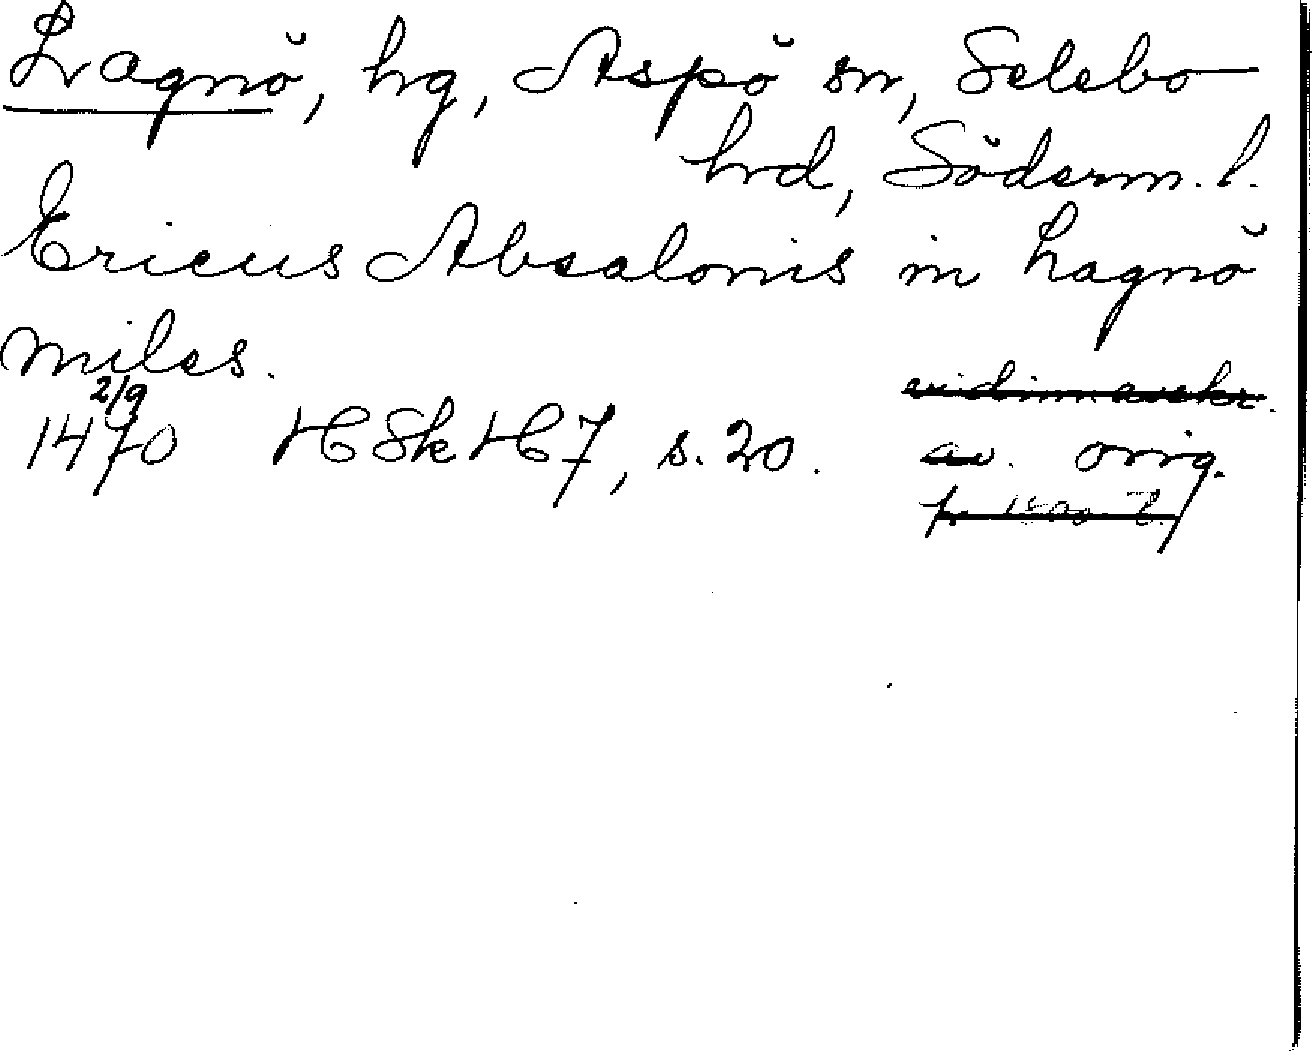 Lagnö, hg, Aspö sn, Selebo
hrd, Söderm. l.
Ericus Absalonis in Lagnö
miles.
2/9
1470 HSkH 7, s. 20. orig.
vidim. avskr.
av